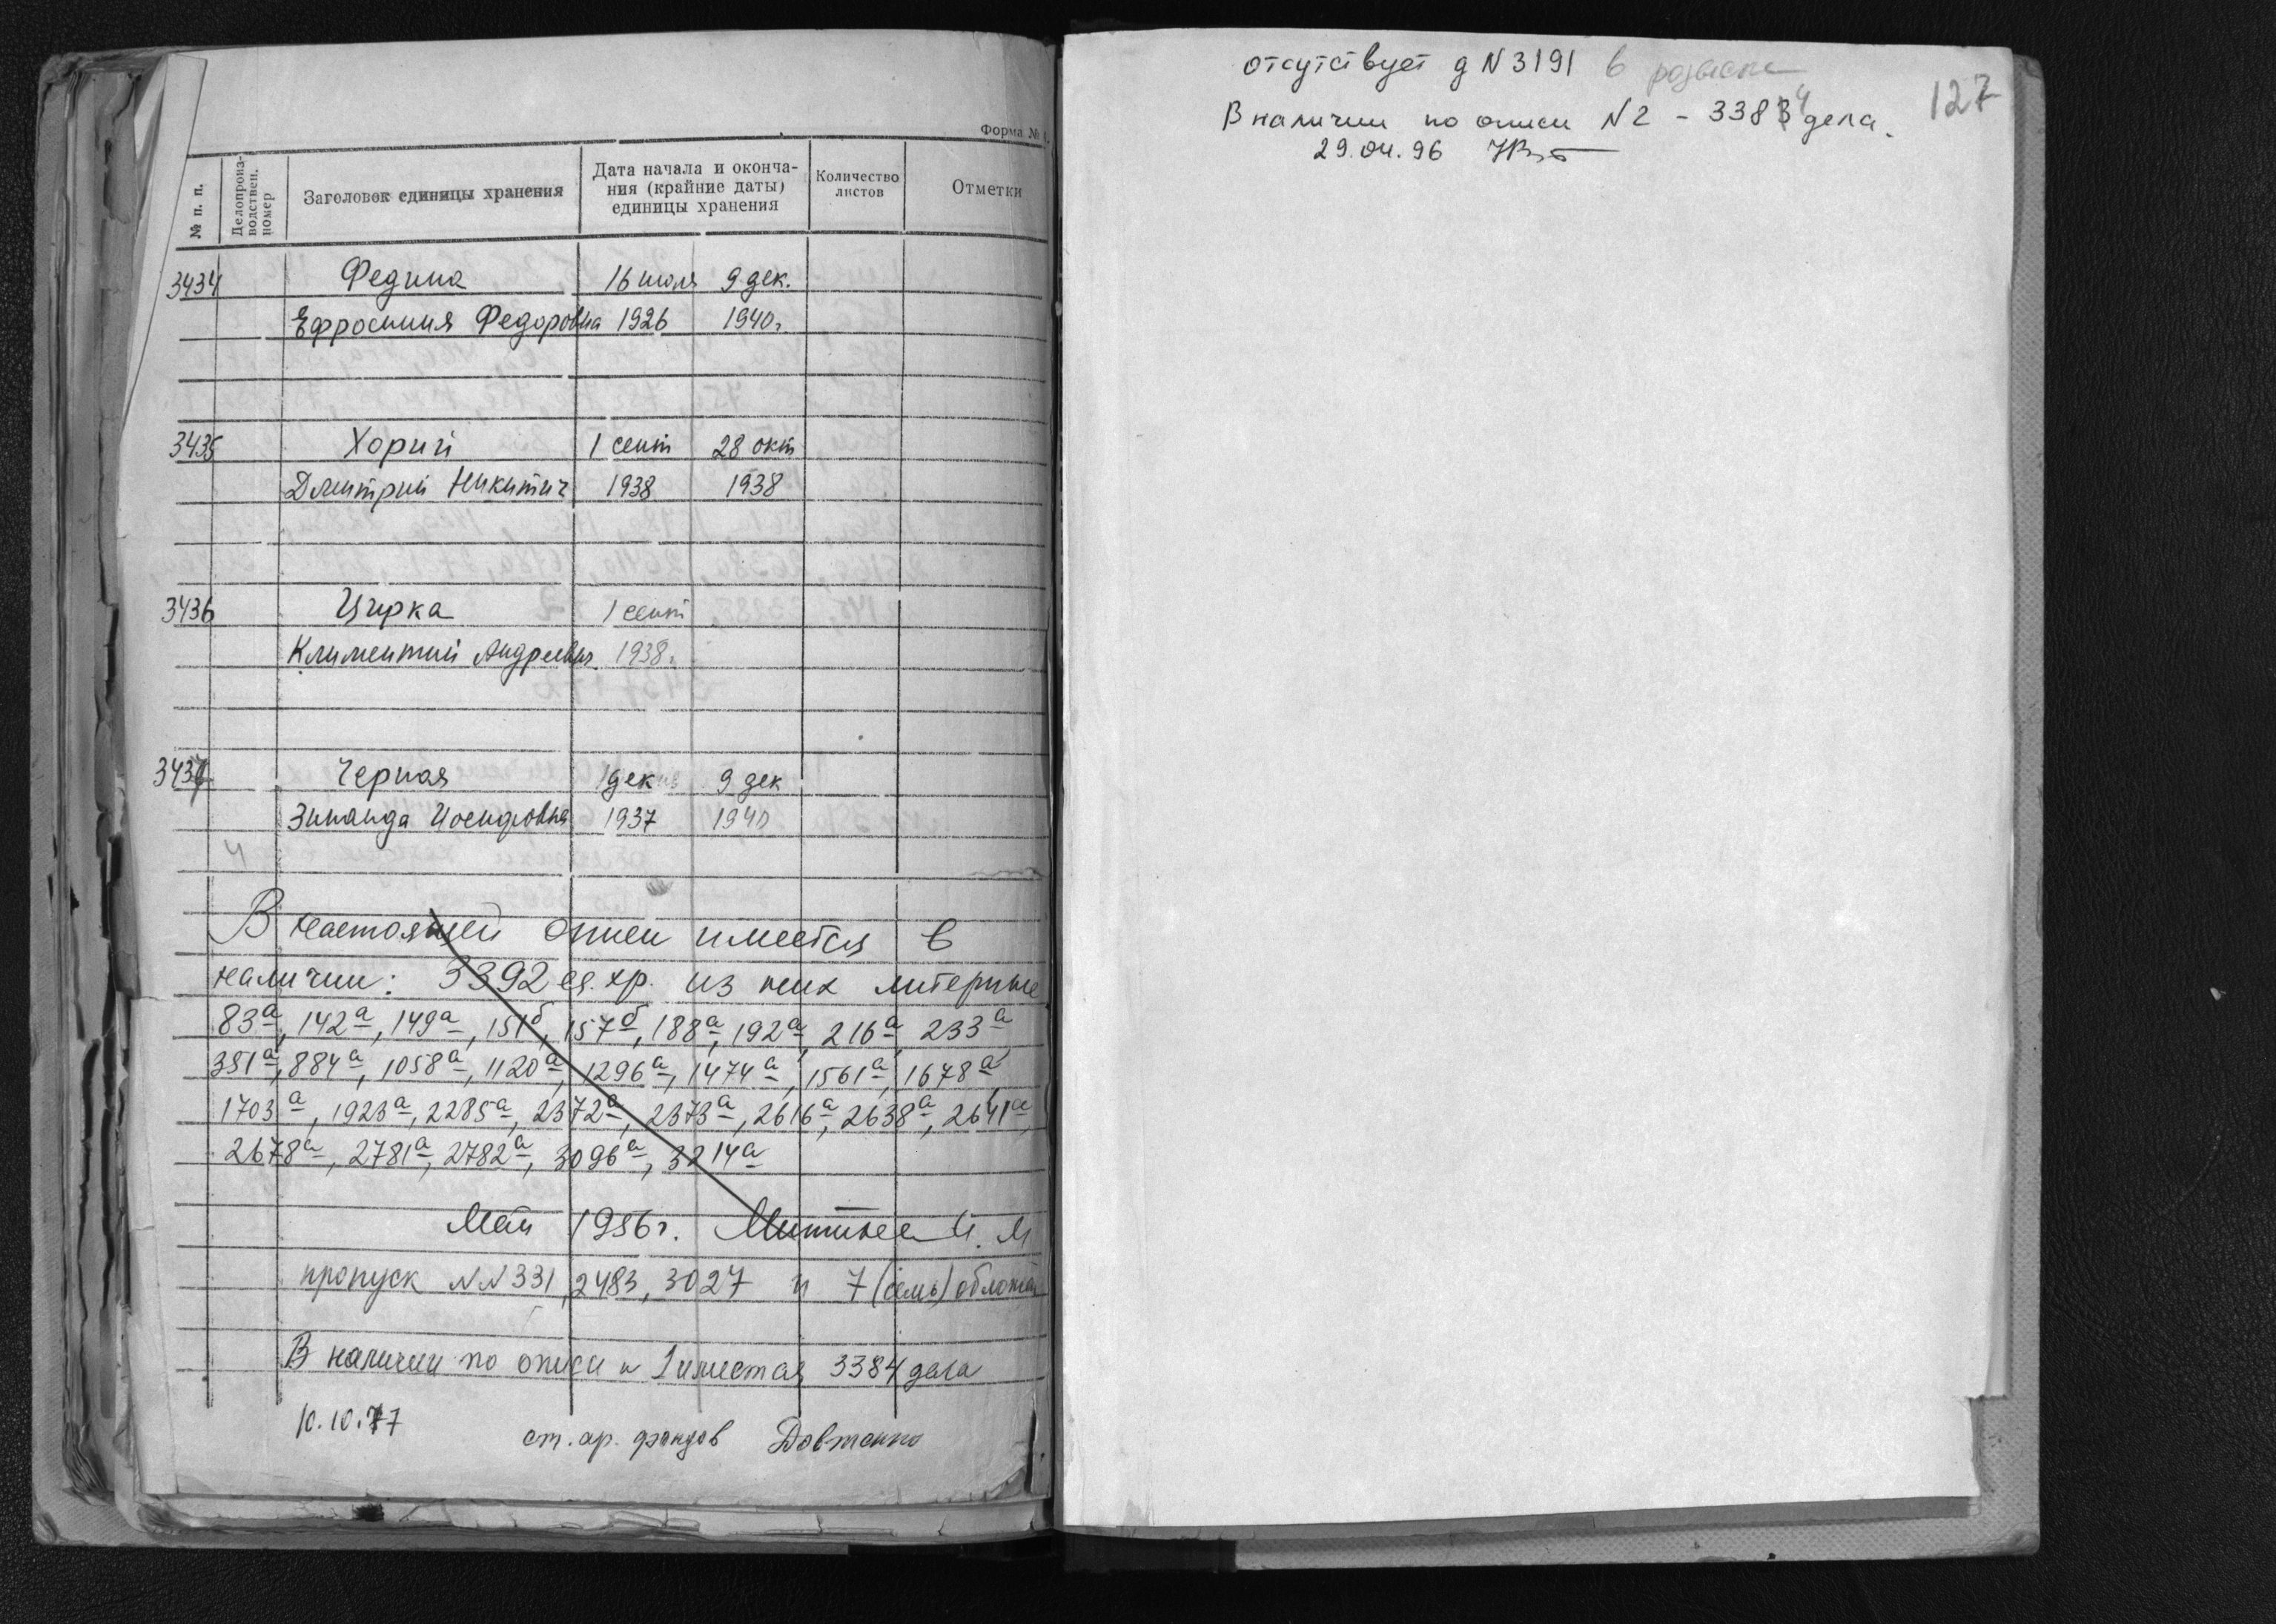 Форма №
№ п. п.
Делопроиз-
водствен.
номер
Заголовок единицы хранения
Дата начала и оконча-
ния (крайние даты)
единицы хранения
Количество
листов
Отметки
3434 Федина 16 июля 9 дек.
Ефросиния Федоровна 1926 1940г.
3435 Хорий 1 сент 28 окт
Дмитрий Никитич 1938 1938
3436 Цирка 1 сент
Климентий Андреевич 1938.
3437 Черная 1 дек 9 дек
Зинаида Иосифовна 1937 1940
Ч
В настоящей описи имеется в
наличии: 3392 ед. хр. из них литерные
83а, 142а, 149а, 151б, 157б, 188а, 192а, 216а, 233а
351а, 884а, 1058а, 1120а, 1296а, 1474а, 1561а, 1678а
1703а, 1923а, 2285а, 2372а, 2373а, 2616а, 2638а, 2641а,
2678а, 2781а, 2782а, 3096а, 3214а
Май 1956г. И. М
пропуск NN 331, 2483, 3027 и 7 (семь) обложек
В наличии по описи 3384 дела
10.10.77 ст. ар. фондов
отсутствует д N 3191 в розыске
В наличии по описи N 2 - 3384 дела.
29.04.96
127